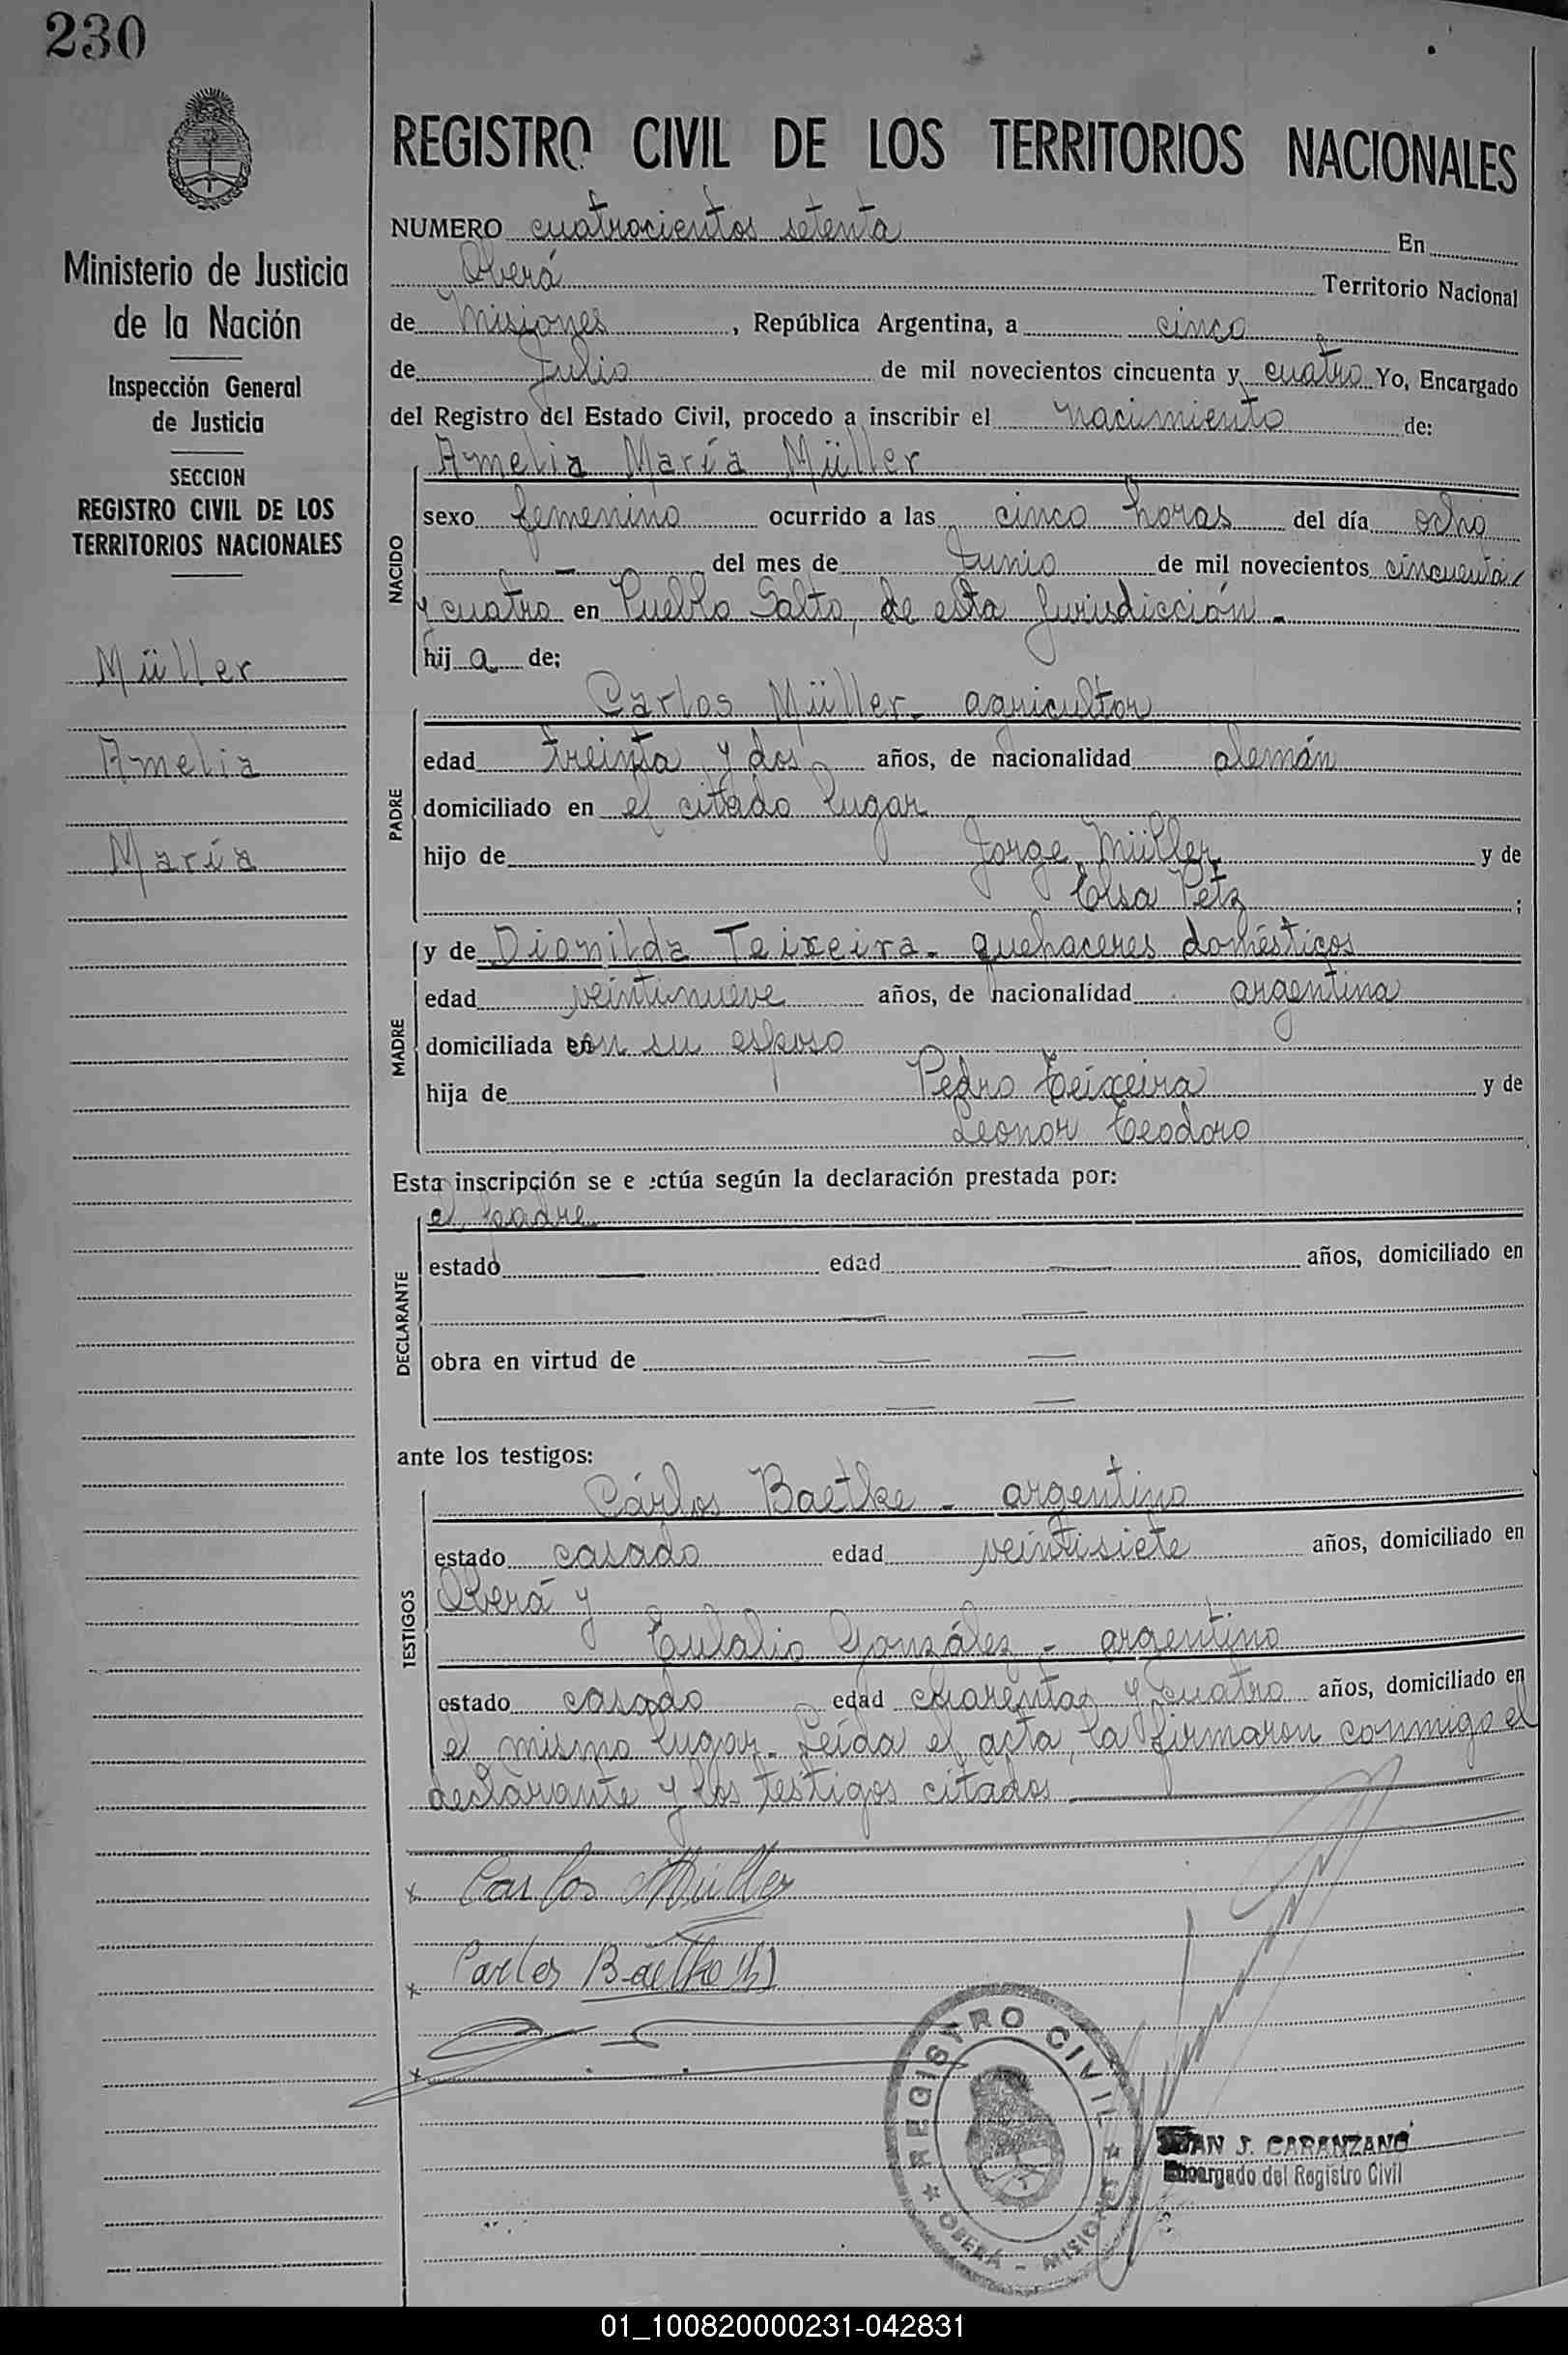 230
REGISTRO CIVIL DE LOS TERRITORIOS NACIONALES
Ministerio de Justicia
de la Nación
Inspección General
de Justicia
SECCION
REGISTRO CIVIL DE LOS
TERRITORIOS NACIONALES
Müller
Amelia
María
NUMERO cuatrocientos setenta En
Oberá Territorio Nacional
de Misiones, República Argentina, a cinco
de Julio de mil novecientos cincuenta y cuatro Yo, Encargado
del Registro del Estado Civil, procedo a inscribir el nacimiento de:
NACIDO
Amelia María Müller
sexo femenino ocurrido a las cinco horas del día ocho
— del mes de Junio de mil novecientos cincuenta
y cuatro en Pueblo Salto, de esta Jurisdicción.-
hij a de:
PADRE
Carlos Müller- agricultor
edad treinta y dos años, de nacionalidad alemán
domiciliado en el citado lugar
hijo de Jorge Müller y de
Elsa Petz ;
MADRE
y de Dionilda Teixeira- quehaceres domésticos
edad veintinueve años, de nacionalidad argentina
domiciliada con su esposo
hija de Pedro Teixeira y de
Leonor Teodoro
Esta inscripción se e ectúa según la declaración prestada por:
DECLARANTE
el padre
estado — edad — años, domiciliado en
— —
obra en virtud de — —
— —
ante los testigos:
TESTIGOS
Cárlos Baetke - argentino
estado casado edad veintisiete años, domiciliado en
Oberá y
Eulalio González - argentino
estado casado edad cuarenta y cuatro años, domiciliado en
el mismo lugar.- Leída el acta, la firmaron conmigo el
declarante y los testigos citados
x Carlos Müller
x Carlos Baetke (h)
x
REGISTRO CIVIL
OBERÁ - MISIONES
JUAN J. CARANZANO
Encargado del Registro Civil
01_100820000231-042831